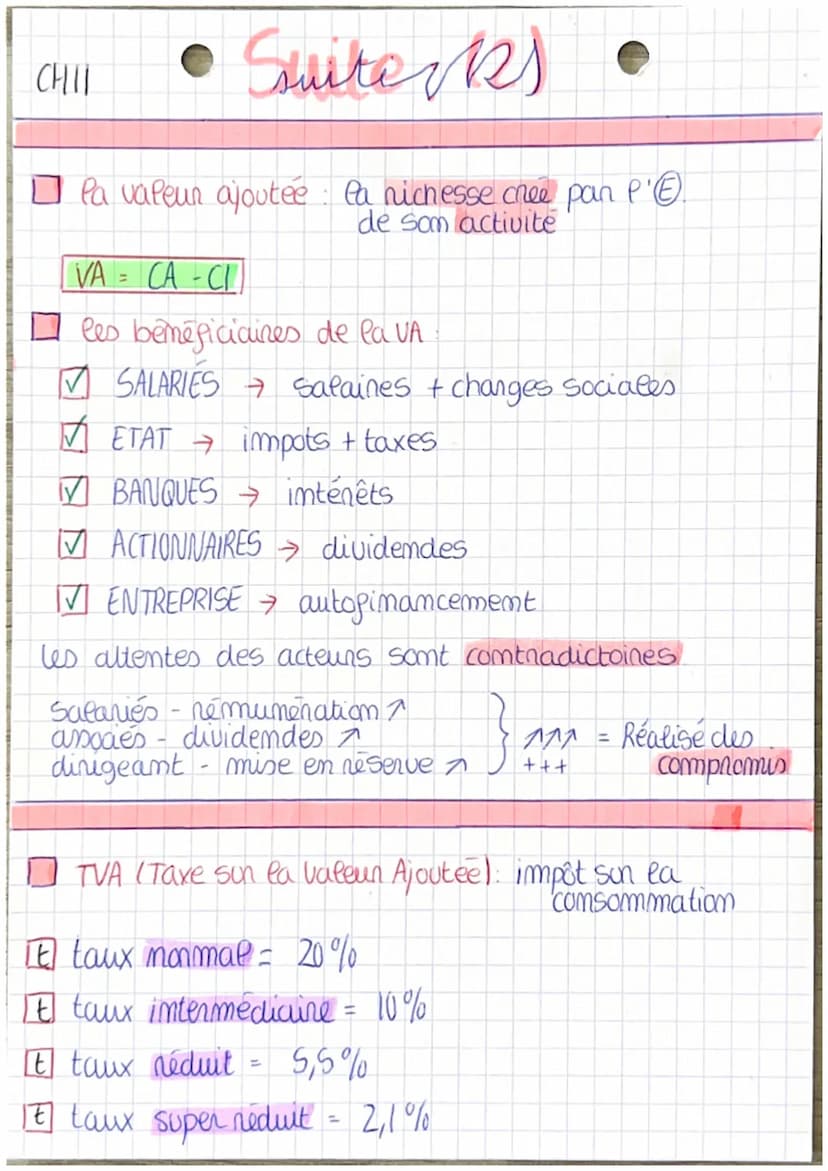 CH11
Suite (2)
la valeur ajoutée : la richesse créé par l'Ⓔ.
de son activité
VA = CA - CI
les bénéficiaires de la VA :
SALARIÉS → salaires + charges sociales
ETAT → impots + taxes
BANQUES → intérêts
ACTIONNAIRES → dividendes
ENTREPRISE → autofinancement
les attentes des acteurs sont contradictoires
salariés - rémmunération ↗
associés - dividendes ↗
dirigeant - mise en réserve ↗
} ↗↗↗ = Réalisé des
+++ compromis
TVA (Taxe sur la valeur Ajoutée) : impôt sur la
consommation
t taux normal = 20%
t taux intermédiaire = 10%
t taux réduit = 5,5%
t taux super réduit = 2,1%